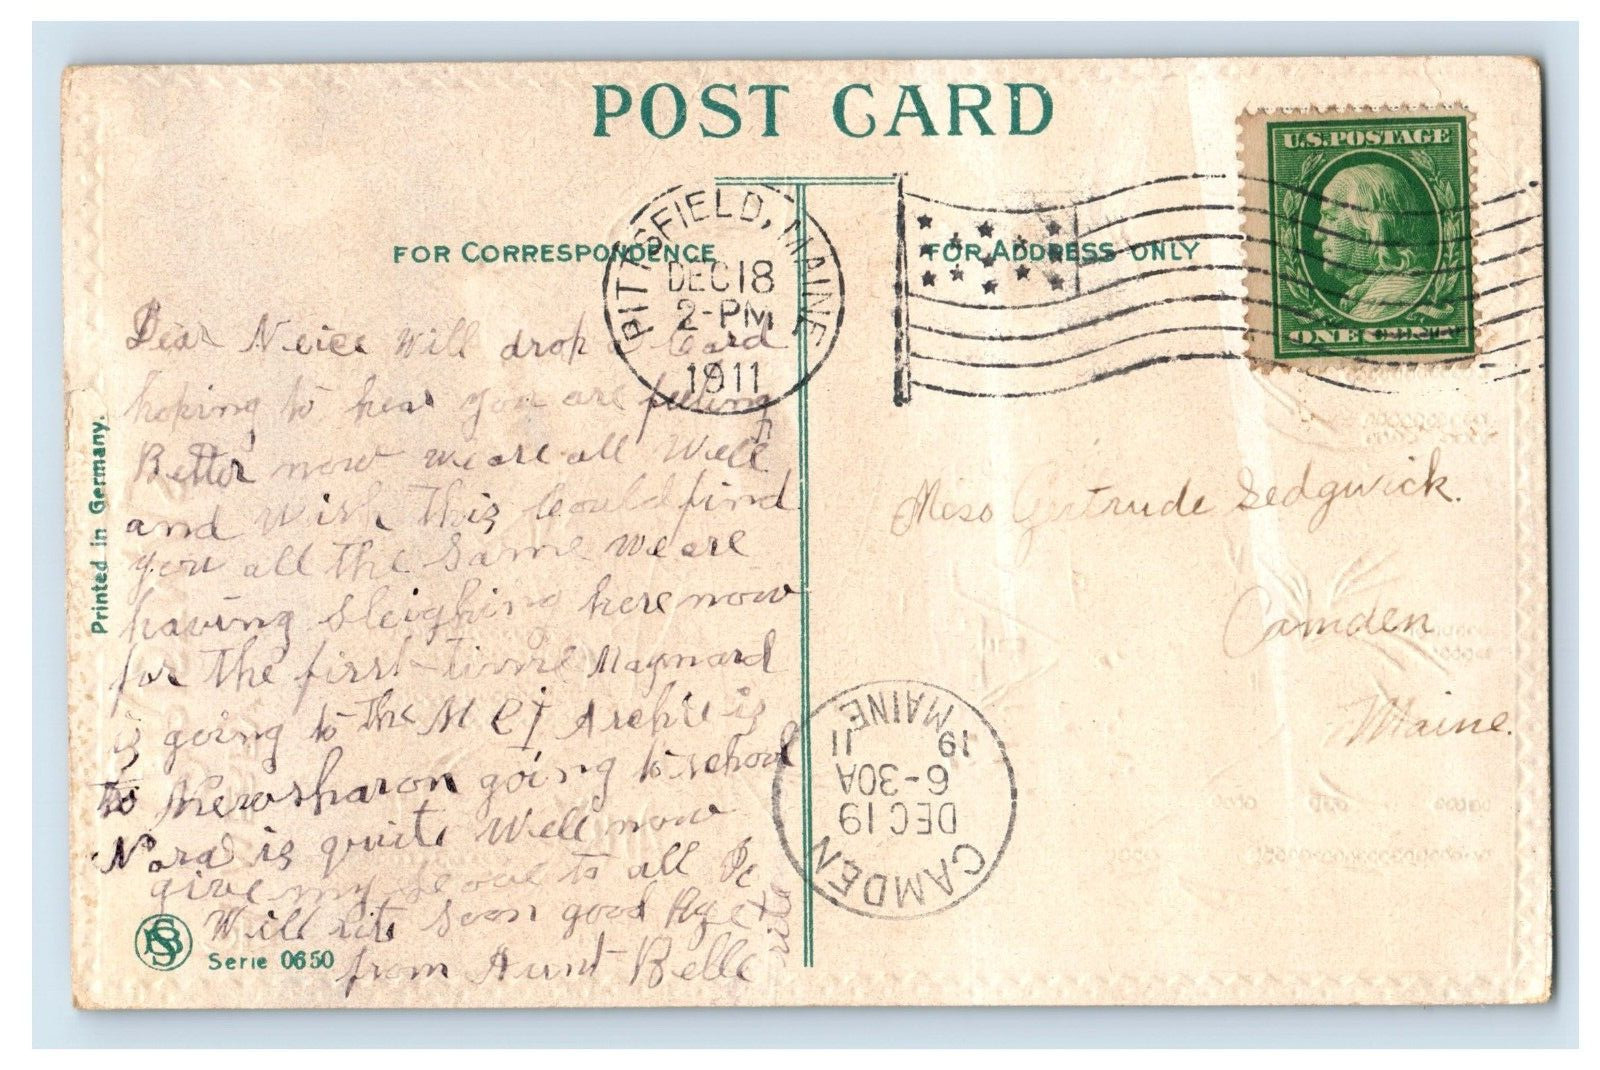 POST CARD
U.S. POSTAGE
ONE CENT
FOR CORRESPONDENCE
FOR ADDRESS ONLY
PITTSFIELD, MAINE
DEC 18
2-PM
1911
Dear Neice Will drop a Card
hoping to hear you are feeling
Better now we are all Well
and Wish this Could find
you all the Same we are
having Sleighing here now
for the first time Maynard
is going to the M C I Archie is
to Newsharon going to school
Nora is quite Well now
give my Love to all
Will Soon good
from Aunt Belle
Miss Gertrude Sedgwick.
Camden
Maine.
CAMDEN
DEC 19
6-30A
19 11
MAINE
Printed in Germany.
Serie 0650